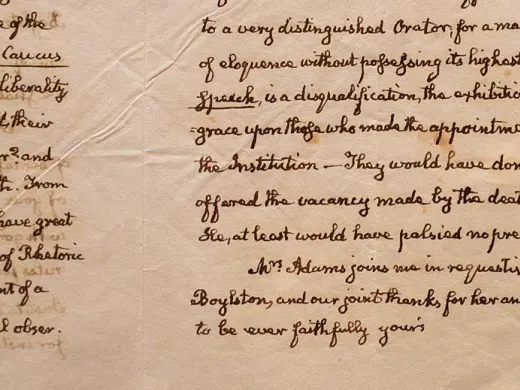 e of the
Caucus
liberality
their
and
From
have great
of Rhetoric
nt of a
l obser.
to a very distinguished Orator, for a ma
of eloquence without possessing its highest
Speech, is a disqualification, the exhibitio
=grace upon those who made the appointme
the Institution — They would have don
offered the vacancy made by the deat
He, at least would have palsied no pre
Mrs Adams joins me in requestin
Boylston, and our joint thanks for her an
to be ever faithfully yours